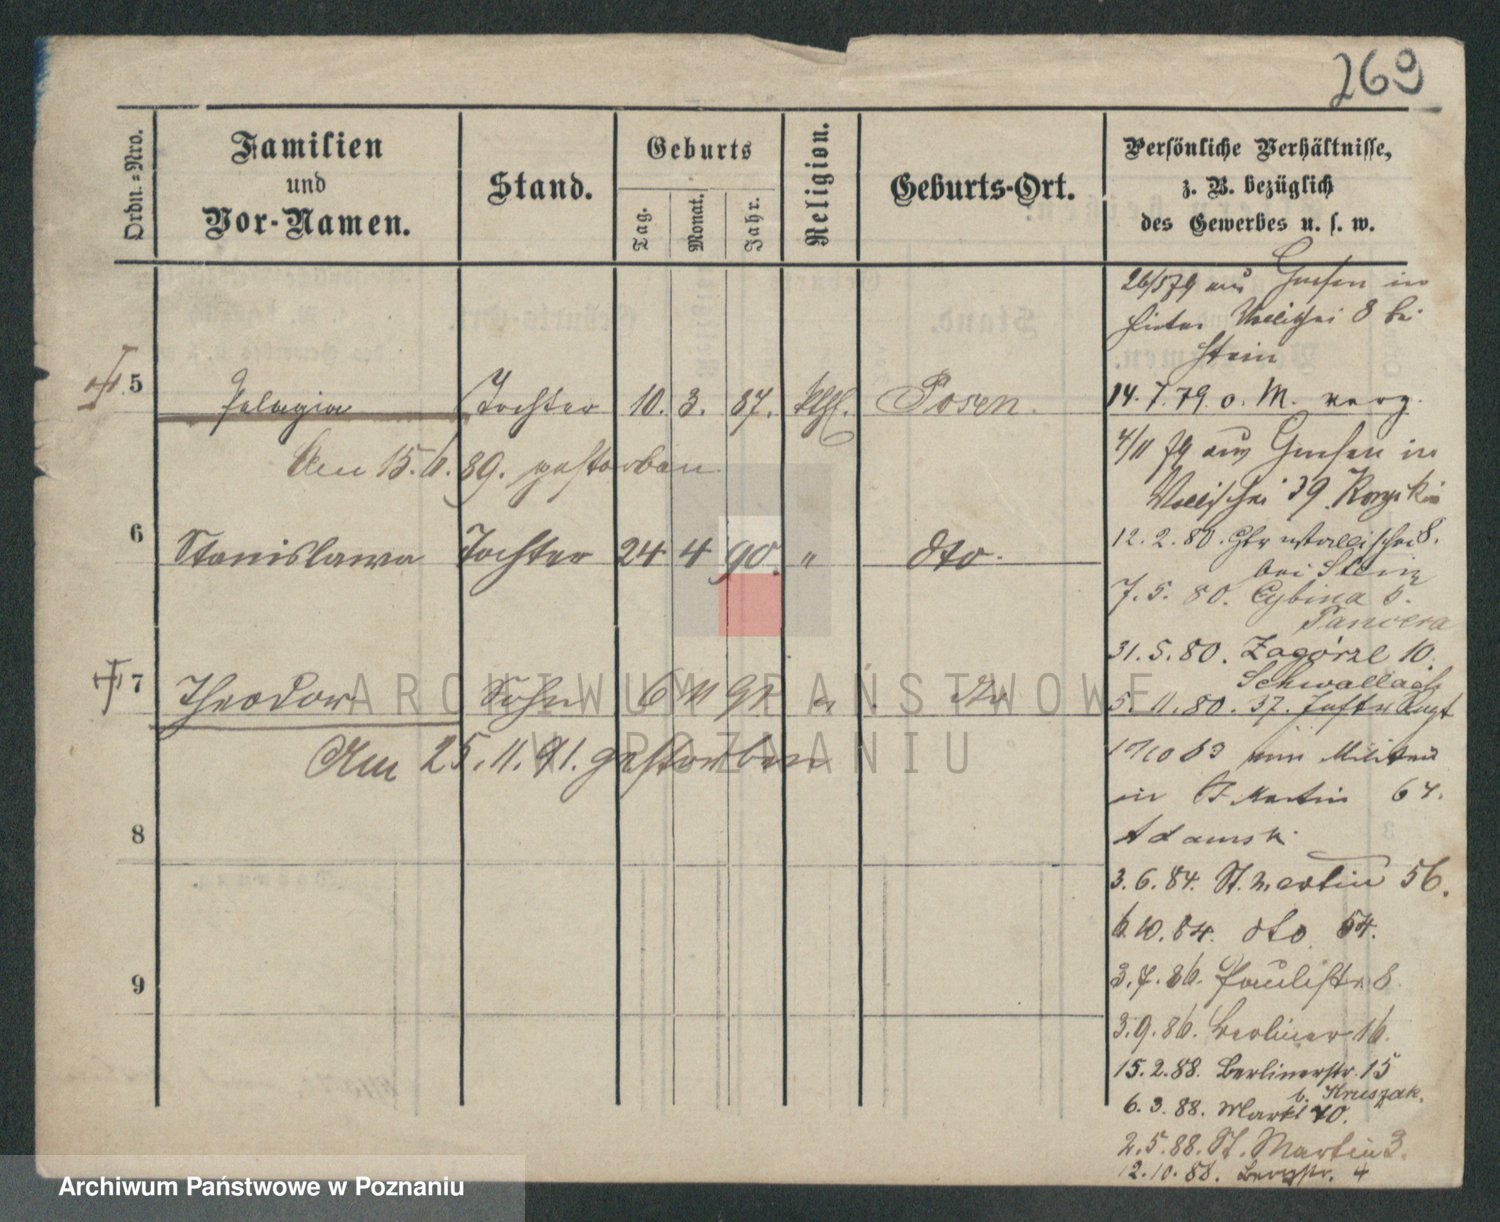 269
Ordn.=Nro.
Familien
und
Vor-Namen.
Stand.
Geburts
Tag.
Monat.
Jahr.
Religion.
Geburts-Ort.
Persönliche Verhältnisse,
z. B. bezüglich
des Gewerbes u. s. w.
5 Pelagia Tochter 10. 3. 87. kthl. Posen.
Am 15. 6. 89. gestorben
6 Stanislawa Tochter 24 4 90. " dto.
7 Theodor Sohn 6 11 91 " dto
Am 25. 11. 91. gestorben
8
9
26/5 79 aus Gnesen in
Hinter Wallischei 8 bei
Stein
14. 7. 79. o. M. verz.
4/11 79 aus Gnesen in
Wallischei 39
12. 2. 80. Htr Wallischei 8.
bei Stein
7. 5. 80. Cybina 5.
31. 5. 80. Zagórze 10.
5. 11. 80. 37.
vom Militair
in St Martin 64.
Adamski
3. 6. 84. St. Martin 56.
6. 10. 84. dto 54.
3. 7. 86. Paulistr. 8.
3. 9. 86. Berliner 16.
15. 2. 88. Berlinerstr. 15
b. Kruszak.
6. 3. 88. Markt 70.
2. 5. 88. St. Martin 3.
12. 10. 88. Bergstr. 4
ARCHIWUM PAŃSTWOWE
W POZNANIU
Archiwum Państwowe w Poznaniu